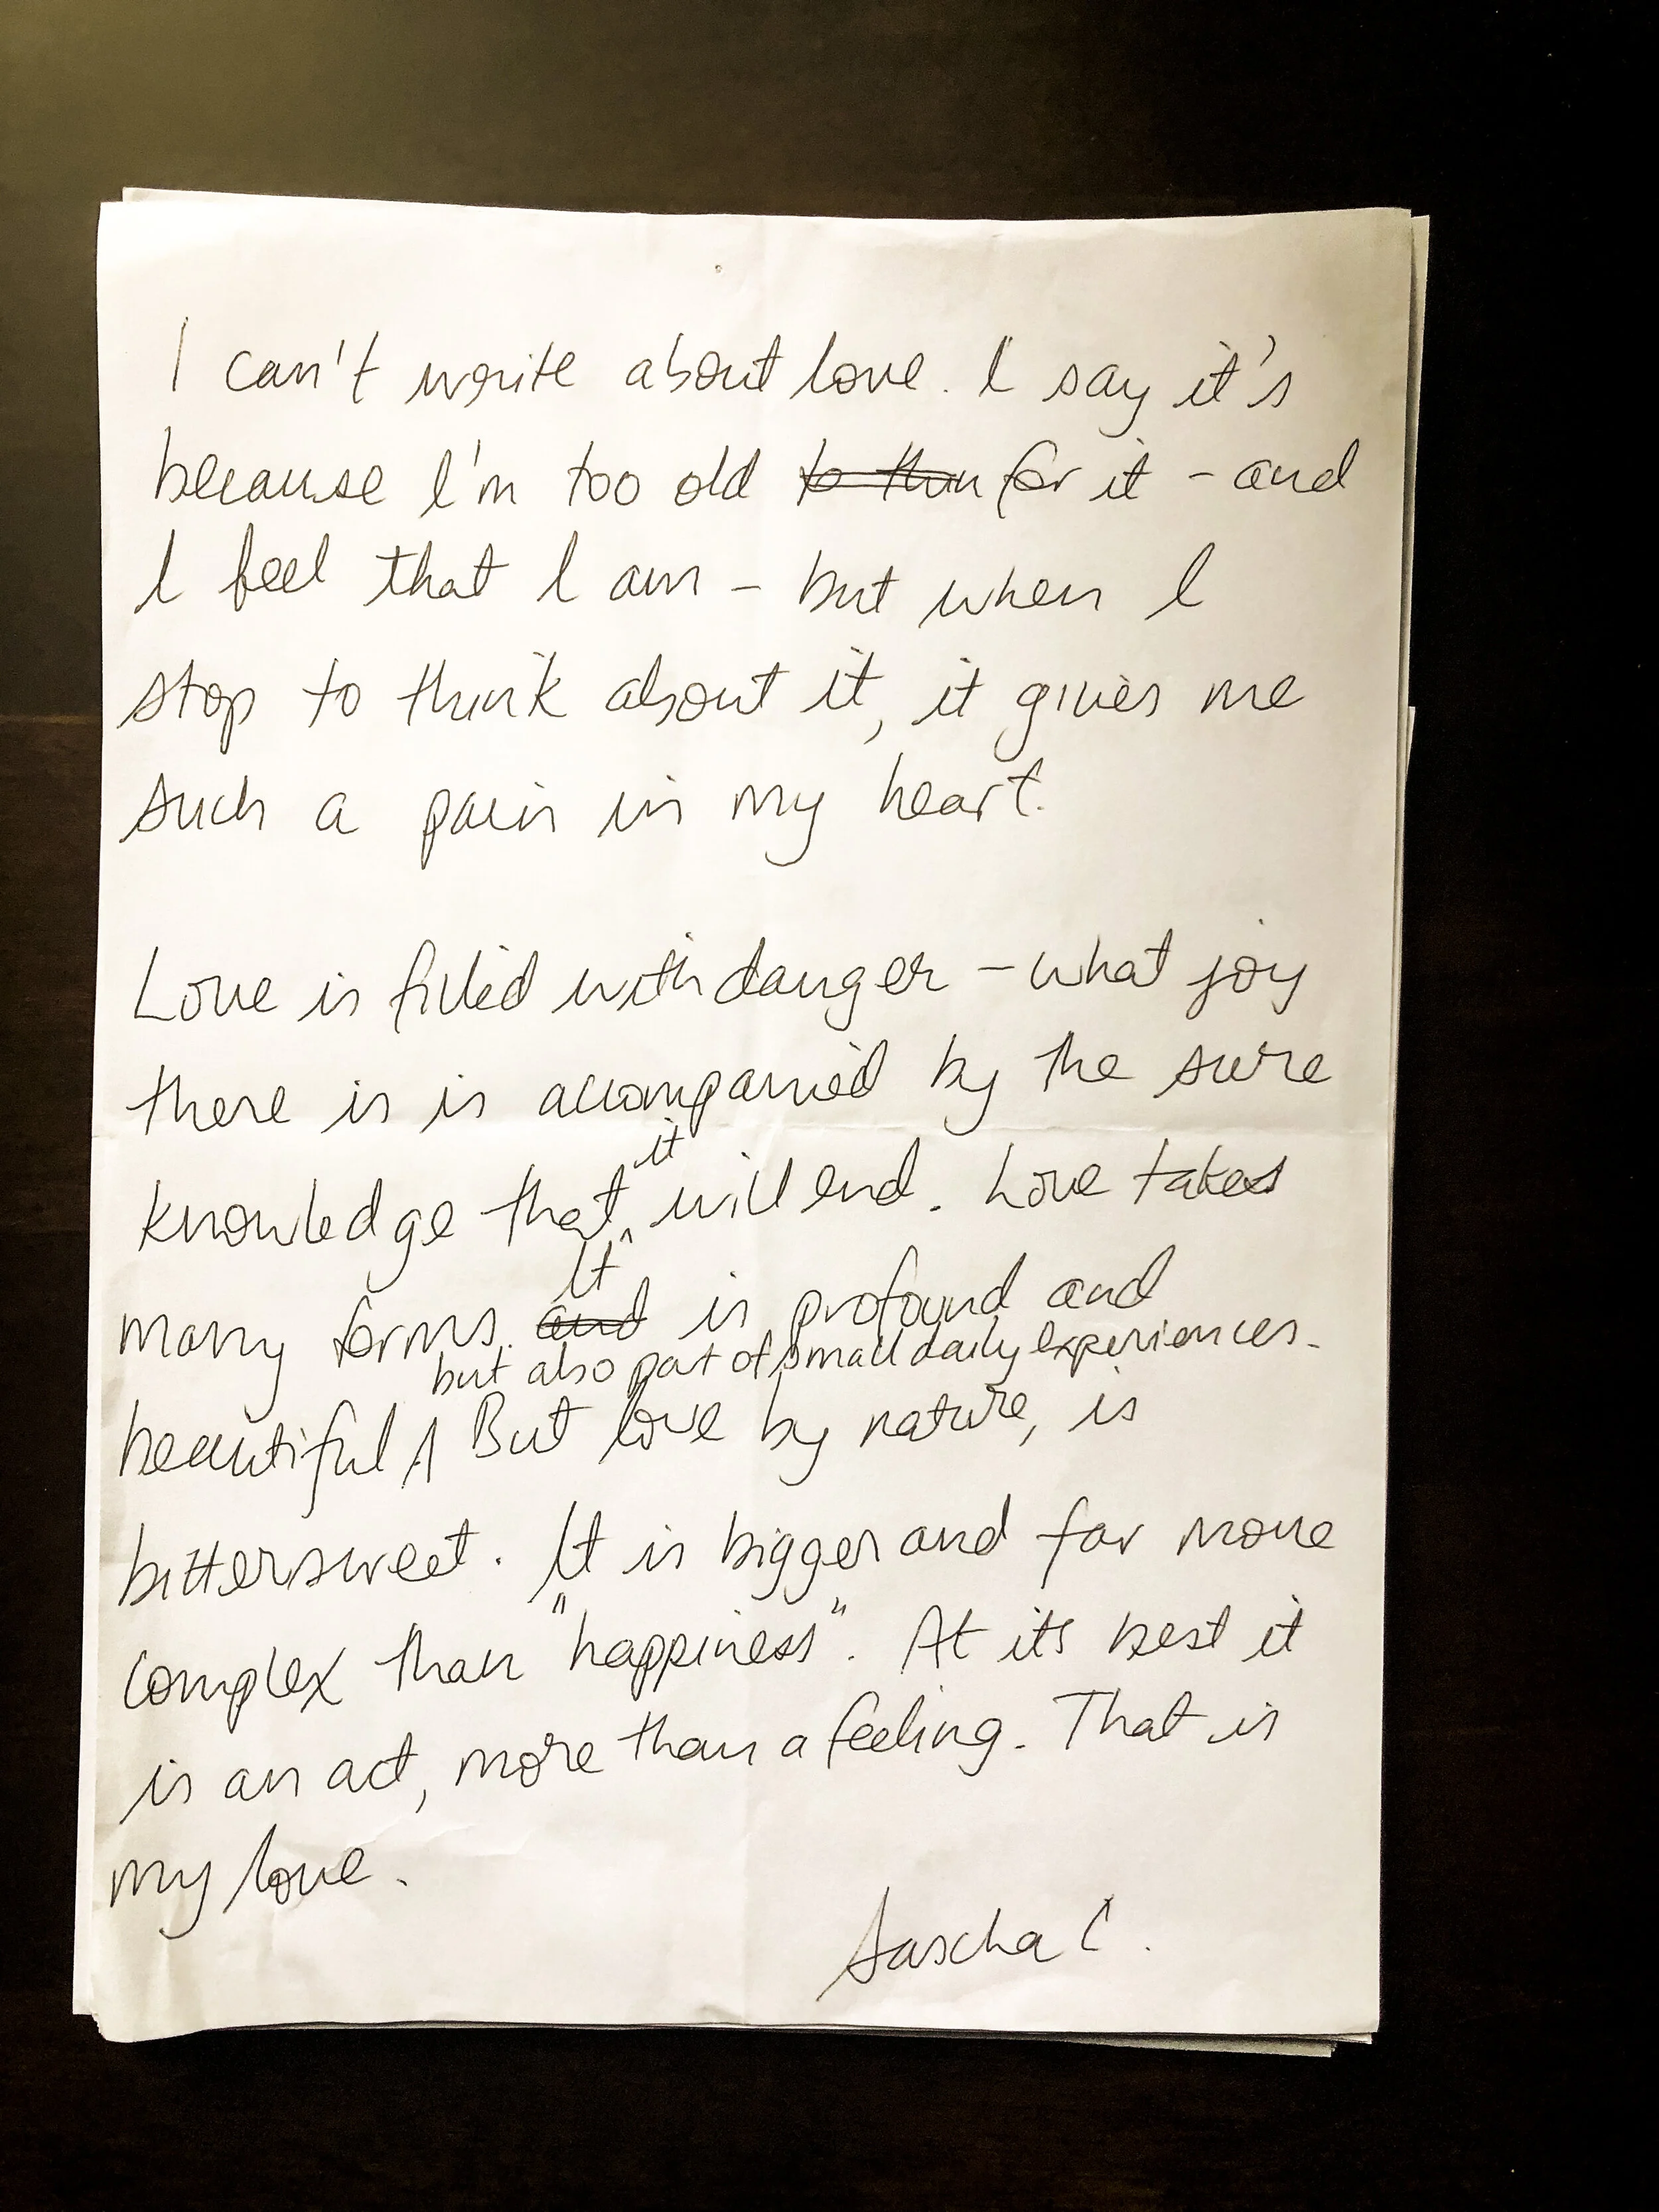 I can't write about love. I say it's
because I'm too old to thin for it - and
I feel that I am - but when I
stop to think about it, it gives me
such a pain in my heart.
Love is filled with danger - what joy
there is is accompanied by the sure
it
knowledge that will end. Love takes
It
many forms. and is profound and
but also part of small daily experiences.
beautiful But love by nature, is
bittersweet. It is bigger and far more
complex than "happiness". At its best it
is an act, more than a feeling. That is
my love.
Sascha C.